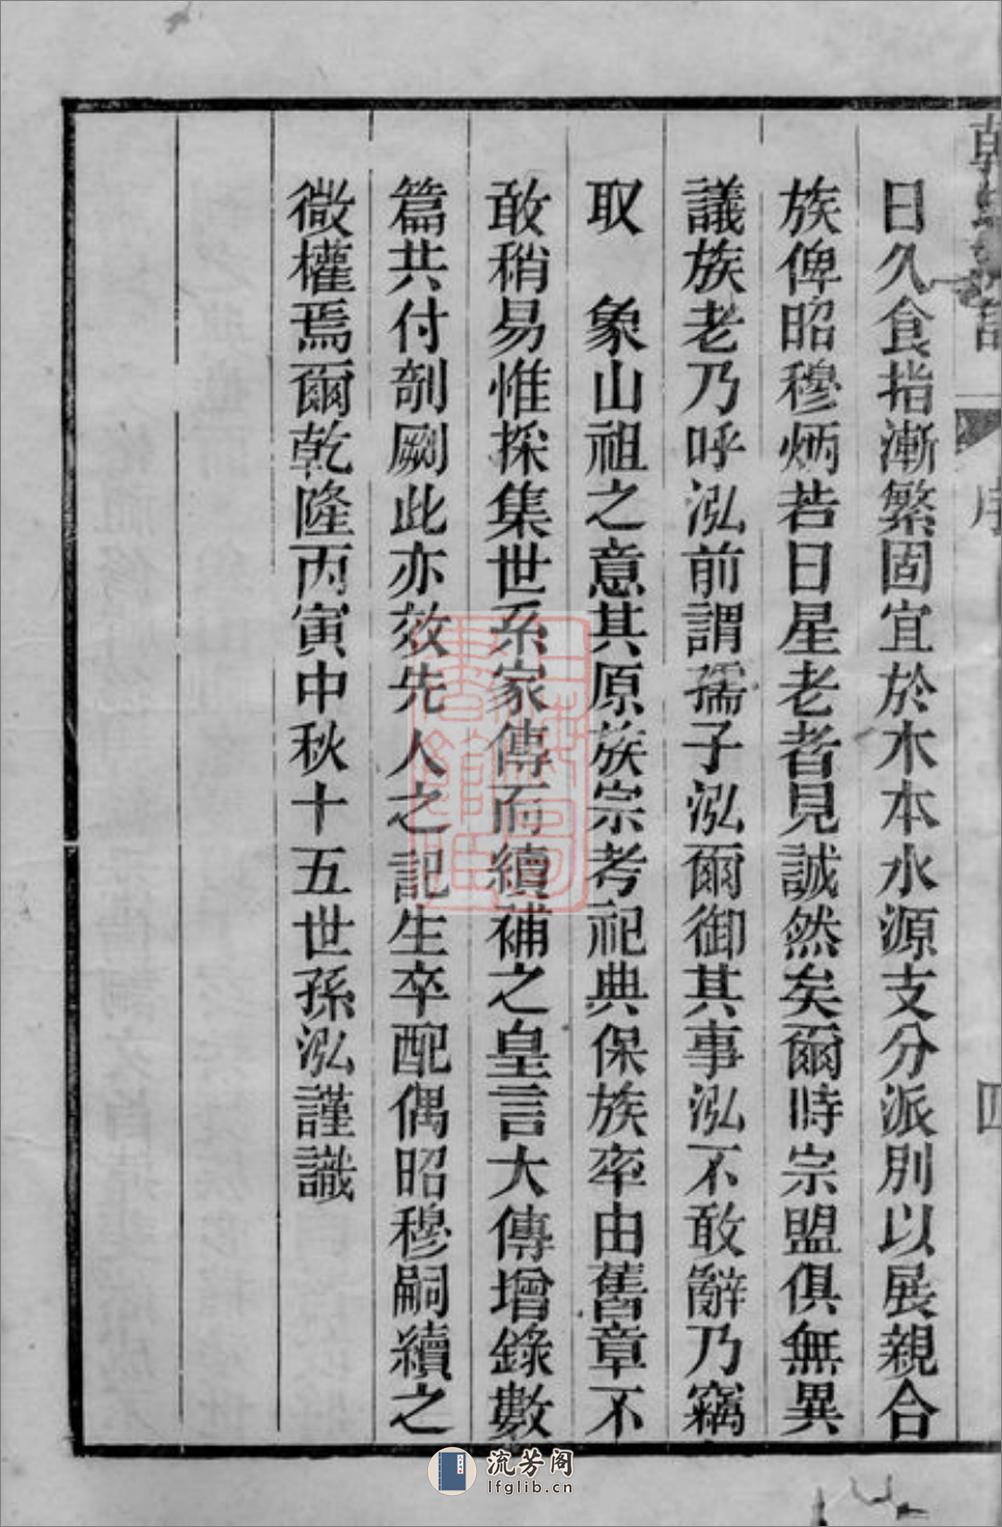 序
四
日久食指漸繁固宜於木本水源支分派別以展親合
族俾昭穆炳若日星老者見誠然矣爾時宗盟俱無異
議族老乃呼泓前謂孺子泓爾御其事泓不敢辭乃竊
取　象山祖之意其原族宗考祀典保族率由舊章不
敢稍易惟採集世系家傳而續補之皇言大傳增錄數
篇共付剞劂此亦效先人之記生卒配偶昭穆嗣續之
微權焉爾乾隆丙寅中秋十五世孫泓謹識
流芳阁
lfglib.cn